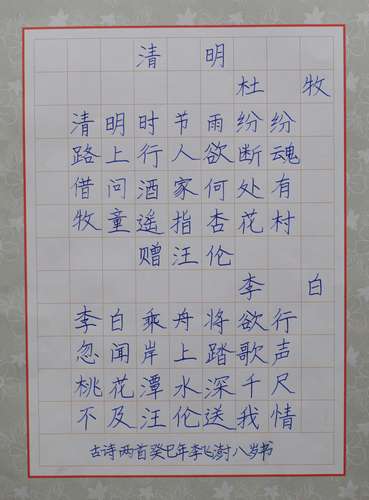 清明
杜牧
清明时节雨纷纷
路上行人欲断魂
借问酒家何处有
牧童遥指杏花村
赠汪伦
李白
李白乘舟将欲行
忽闻岸上踏歌声
桃花潭水深千尺
不及汪伦送我情
古诗两首癸巳年李飞澍八岁书